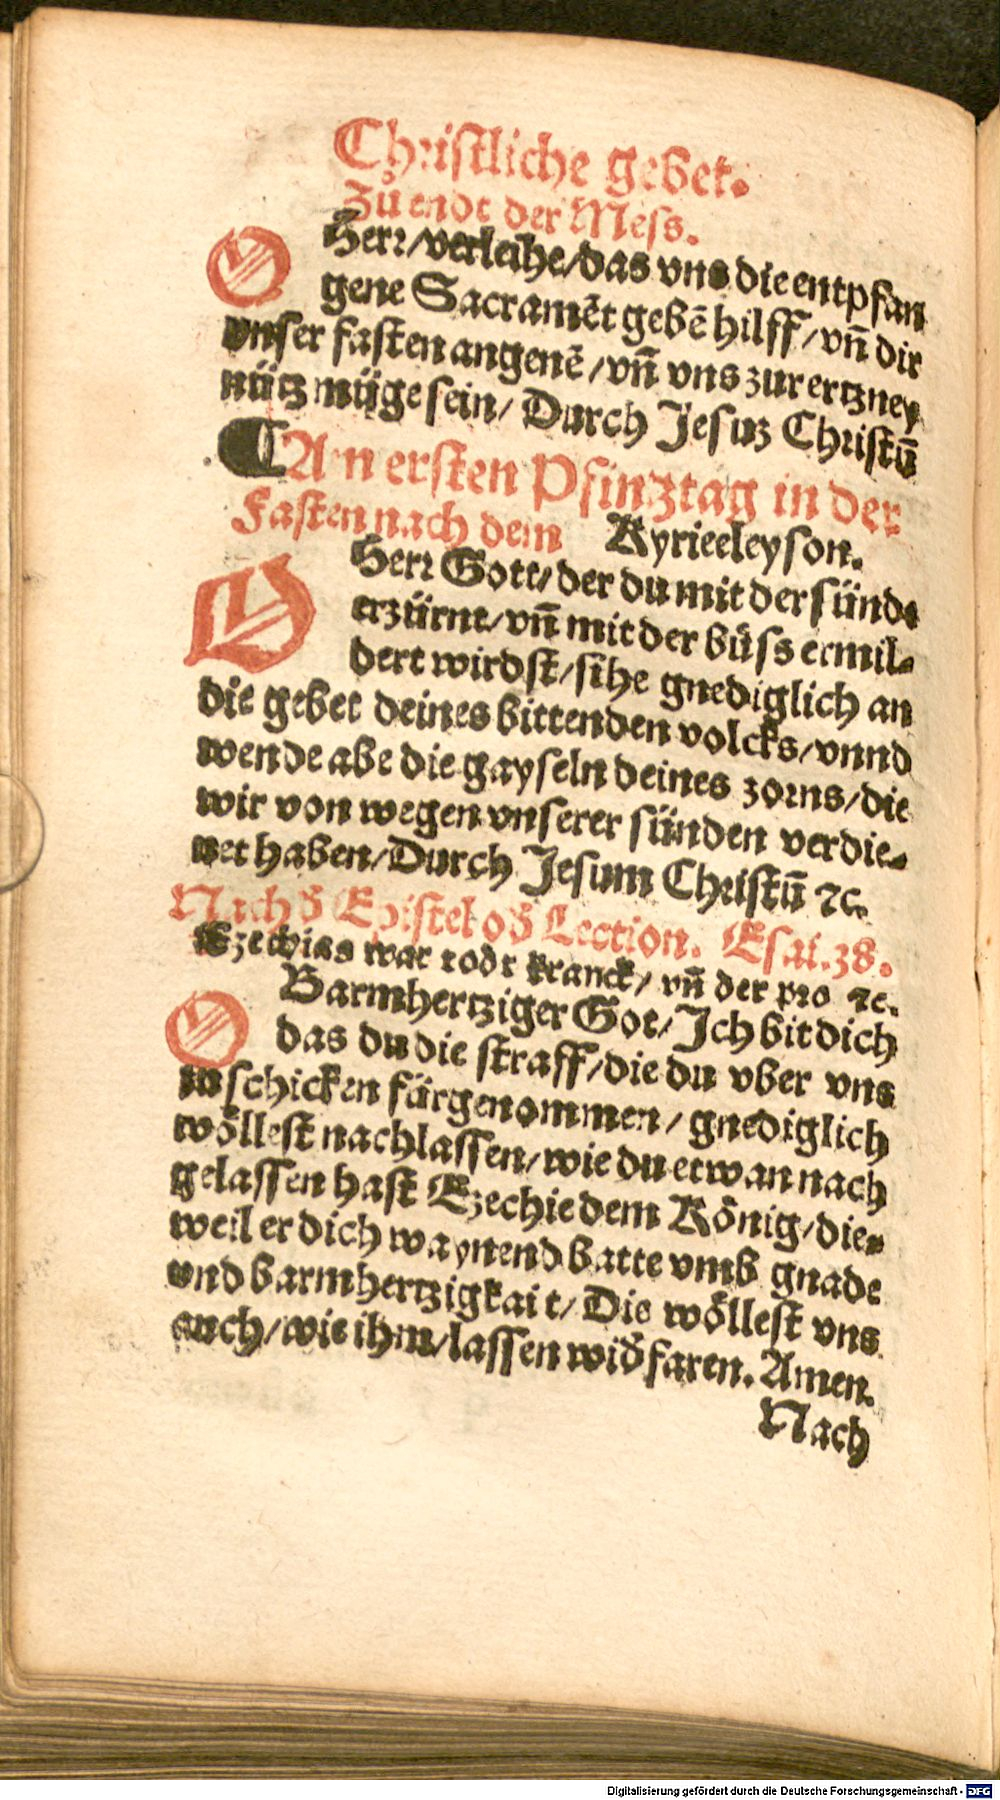 Christliche gebet.
Zů endt der Mess.
O Herr/verleihe/das vns die entpfan
gene Sacramēt gebē hilff/vn̄ dir
vnser fasten angenē/vn̄ vns zur ertzney
nütz müge sein/ Durch Jesuz Christū
¶ Am ersten Pfinztag in der
Fasten nach dem Kyrieeleyson.
O Herr Gott/der du mit der sünde
erzürnt/vn̄ mit der bůss ermil-
dert wirdst/sihe gnediglich an
die gebet deines bittenden volcks/vnnd
wende abe die gayseln deines zorns/die
wir von wegen vnserer sünden verdie-
net haben/Durch Jesum Christū ⁊c.
Nach d̄ Epistel od̄ Lection. Esai.38.
Ezechias war todt kranck/ vn̄ der pro ⁊c.
O Barmhertziger Got/Ich bit dich
das du die straff/die du vber vns
zu schicken fürgenommen/ gnediglich
wöllest nachlassen/wie du etwan nach
gelassen hast Ezechie dem König/die-
weil er dich waynend batte vmb gnade
vnd barmhertzigkait/Die wöllest vns
auch/wie ihm/lassen wid̄faren. Amen.
Nach
Digitalisierung gefördert durch die Deutsche Forschungsgemeinschaft - DFG